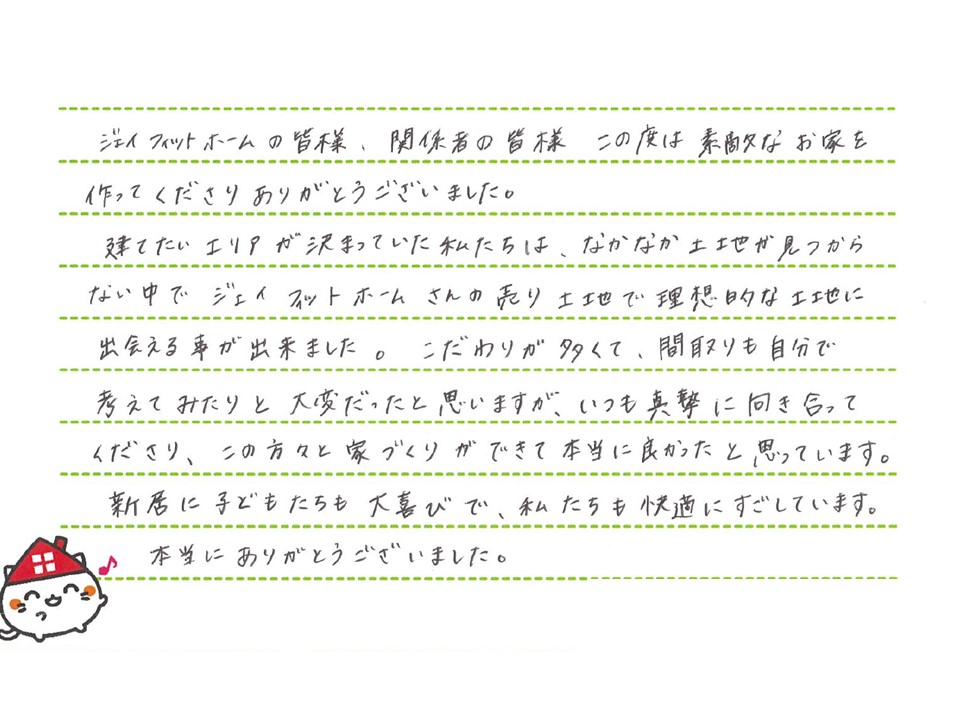 ジェイフィットホームの皆様、関係者の皆様 この度は素敵なお家を
作ってくださりありがとうございました。
建てたいエリアが決まっていた私たちは、なかなか土地が見つから
ない中でジェイフィットホームさんの売り土地で理想的な土地に
出会える事が出来ました。こだわりが多くて、間取りも自分で
考えてみたりと大変だったと思いますが、いつも真摯に向き合って
くださり、この方々と家づくりができて本当に良かったと思っています。
新居に子どもたちも大喜びで、私たちも快適にすごしています。
本当にありがとうございました。